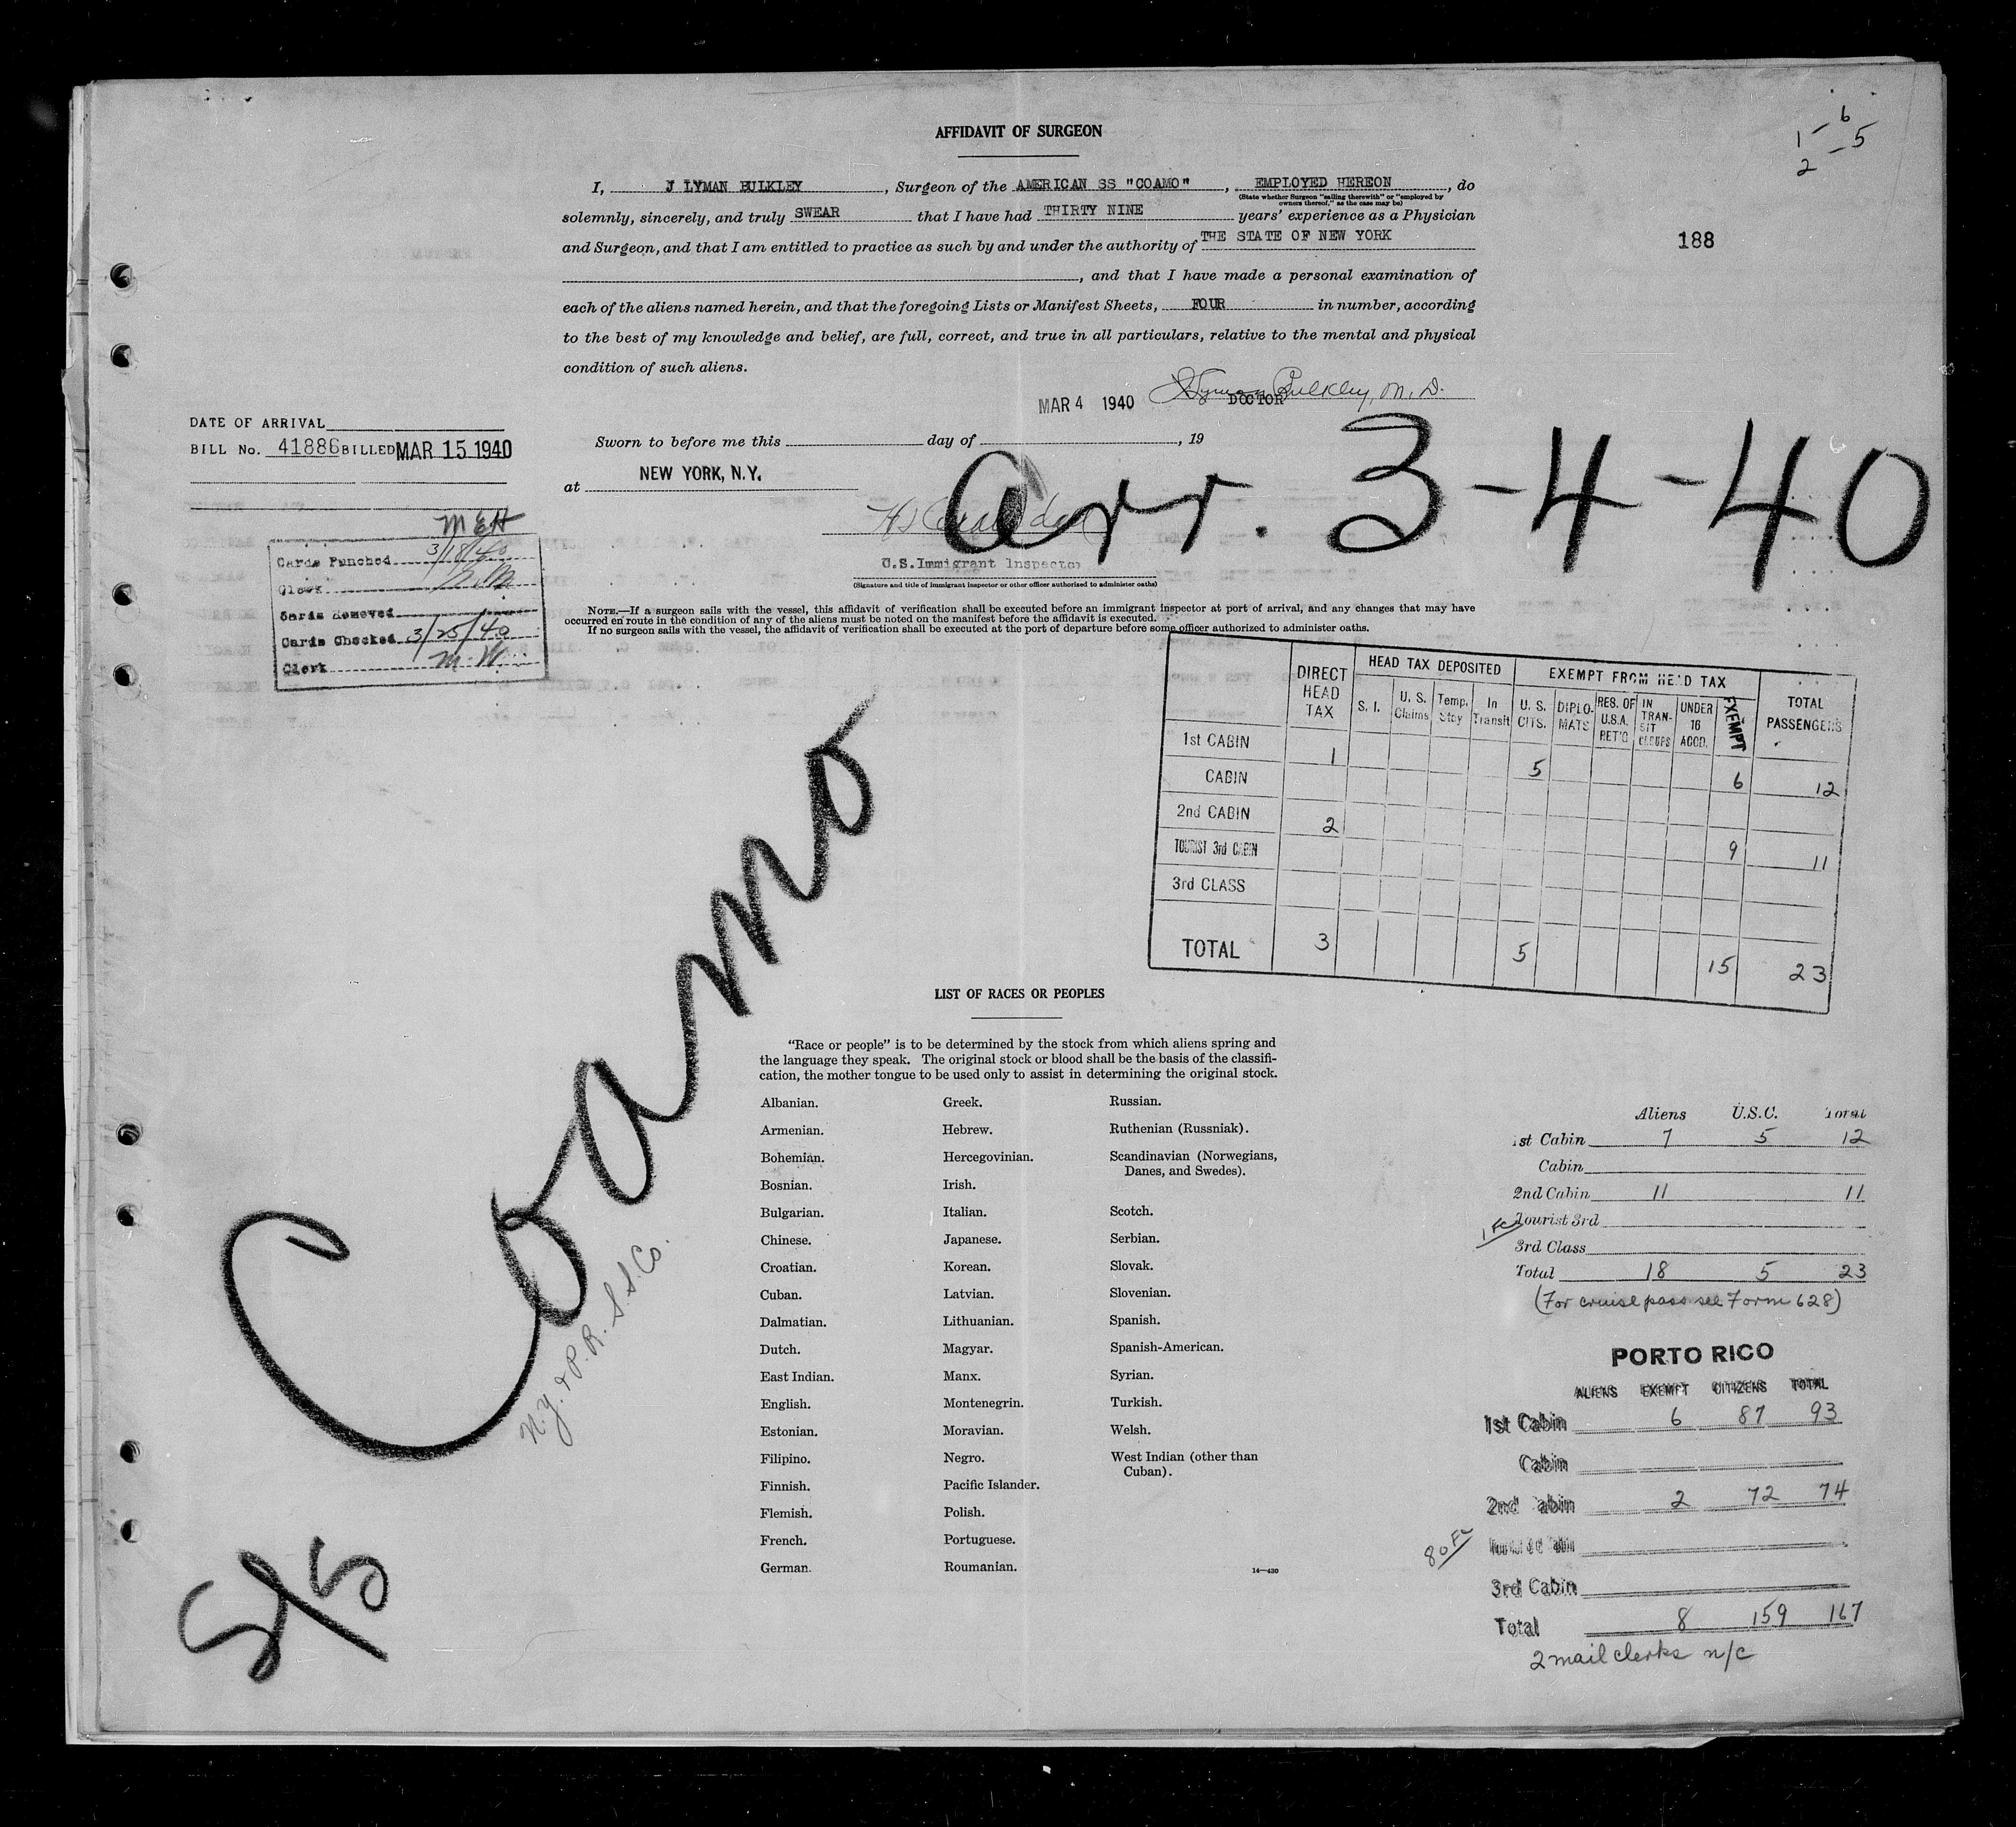 AFFIDAVIT OF SURGEON
1 – 6
2 – 5
I, J LYMAN BULKLEY, Surgeon of the AMERICAN SS "COAMO", EMPLOYED HEREON, do
(State whether Surgeon "sailing therewith" or "employed by
owners thereof," as the case may be)
solemnly, sincerely, and truly SWEAR that I have had THIRTY NINE years' experience as a Physician
and Surgeon, and that I am entitled to practice as such by and under the authority of THE STATE OF NEW YORK
188
, and that I have made a personal examination of
each of the aliens named herein, and that the foregoing Lists or Manifest Sheets, FOUR in number, according
to the best of my knowledge and belief, are full, correct, and true in all particulars, relative to the mental and physical
condition of such aliens.
MAR 4 1940 J Lyman Bulkley, M.D.
DOCTOR
DATE OF ARRIVAL
BILL No. 41886 BILLED MAR 15 1940
Sworn to before me this day of , 19
at NEW YORK, N.Y.
arr. 3-4-40
U.S. Immigrant Inspector
(Signature and title of immigrant inspector or other officer authorized to administer oaths)
MEH
Cards Punched 3/18/40
Clerk
Cards Removed
Cards Checked 3/25/40
Clerk M.W.
NOTE.—If a surgeon sails with the vessel, this affidavit of verification shall be executed before an immigrant inspector at port of arrival, and any changes that may have
occurred en route in the condition of any of the aliens must be noted on the manifest before the affidavit is executed.
If no surgeon sails with the vessel, the affidavit of verification shall be executed at the port of departure before some officer authorized to administer oaths.
DIRECT HEAD TAX HEAD TAX DEPOSITED EXEMPT FROM HEAD TAX TOTAL PASSENGERS
S. I. U. S. Claims Temp. Stay In Transit U. S. CITS. DIPLO-MATS RES. OF U.S.A. RET'G IN TRAN-SIT GROUPS UNDER 16 ACCD. EXEMPT
1st CABIN 1 5 6 12
CABIN
2nd CABIN 2 9 11
TOURIST 3rd CABIN
3rd CLASS
TOTAL 3 5 15 23
Coamo
N.Y. & P.R. S.S. Co.
S/S
LIST OF RACES OR PEOPLES
"Race or people" is to be determined by the stock from which aliens spring and
the language they speak. The original stock or blood shall be the basis of the classifi-
cation, the mother tongue to be used only to assist in determining the original stock.
Albanian.
Armenian.
Bohemian.
Bosnian.
Bulgarian.
Chinese.
Croatian.
Cuban.
Dalmatian.
Dutch.
East Indian.
English.
Estonian.
Filipino.
Finnish.
Flemish.
French.
German.
Greek.
Hebrew.
Hercegovinian.
Irish.
Italian.
Japanese.
Korean.
Latvian.
Lithuanian.
Magyar.
Manx.
Montenegrin.
Moravian.
Negro.
Pacific Islander.
Polish.
Portuguese.
Roumanian.
Russian.
Ruthenian (Russniak).
Scandinavian (Norwegians,
Danes, and Swedes).
Scotch.
Serbian.
Slovak.
Slovenian.
Spanish.
Spanish-American.
Syrian.
Turkish.
Welsh.
West Indian (other than
Cuban).
14—430
Aliens U.S.C. Total
1st Cabin 7 5 12
Cabin
2nd Cabin 11 11
Tourist 3rd
3rd Class
Total 18 5 23
(For cruise pass see Form 628)
PORTO RICO
ALIENS EXEMPT CITIZENS TOTAL
1st Cabin 6 87 93
Cabin
2nd Cabin 2 72 74
3rd Cabin
Total 8 159 167
2 mail clerks n/c